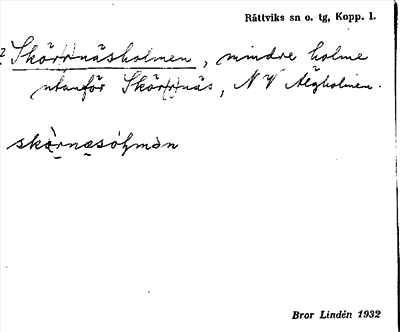 Rättviks sn o. tg, Kopp. l.
Skör(r)näsholmen, mindre holme
utanför Skör(r)näs, NV Älgholmen.
Bror Lindén 1932